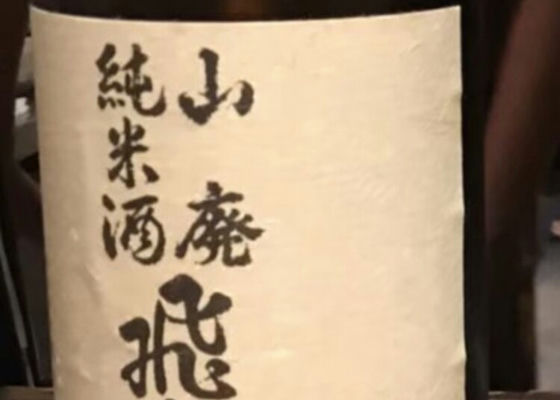 山廃
純米酒
飛